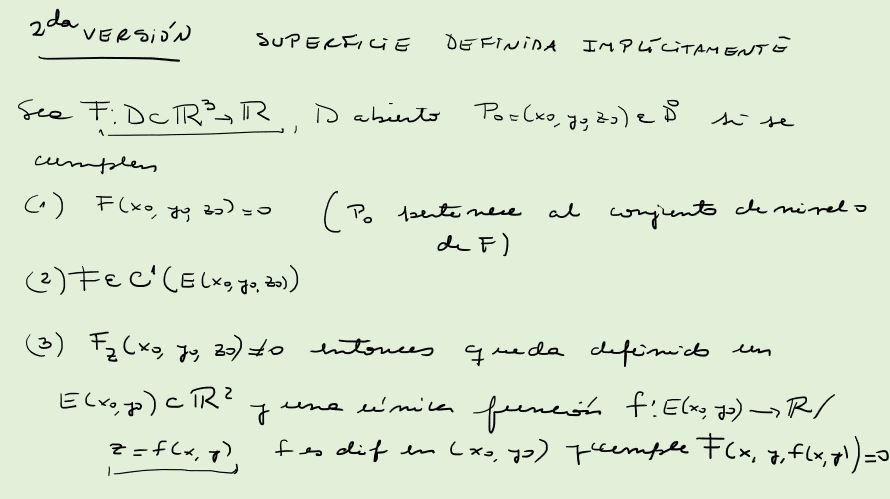 2da VERSIÓN SUPERFICIE DEFINIDA IMPLÍCITAMENTE
Sea F: D⊂ℝ³→ℝ, D abierto P₀=(x₀, y₀, z₀) ε D̊ si se
cumplen
(1) F(x₀, y₀, z₀)=0 (P₀ pertenece al conjunto de nivel 0
de F)
(2) F ε C¹(E(x₀, y₀, z₀))
(3) F_z(x₀, y₀, z₀)≠0 entonces queda definido un
E(x₀,y₀) ⊂ ℝ² y una única función f: E(x₀, y₀) → ℝ/
z=f(x, y) f es dif en (x₀, y₀) y cumple F(x, y, f(x,y))=0